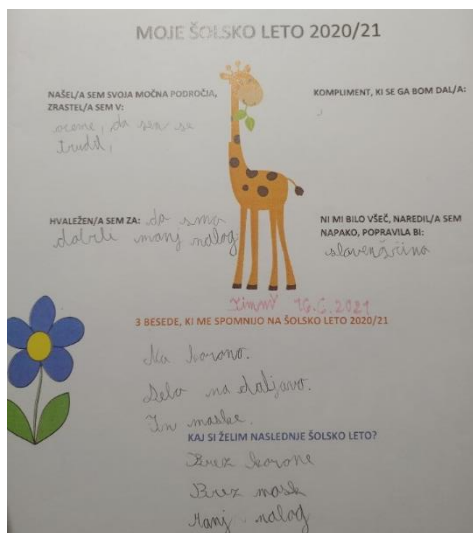 MOJE ŠOLSKO LETO 2020/21
NAŠEL/A SEM SVOJA MOČNA PODROČJA,
ZRASTEL/A SEM V:
ocene, da sem se
trudil,
KOMPLIMENT, KI SE GA BOM DAL/A:
HVALEŽEN/A SEM ZA: da smo
dobili manj nalog
NI MI BILO VŠEČ, NAREDIL/A SEM
NAPAKO, POPRAVILA BI:
slovenščina
16.6.2021
3 BESEDE, KI ME SPOMNIJO NA ŠOLSKO LETO 2020/21
Na korono.
Delo na daljavo.
In maske.
KAJ SI ŽELIM NASLEDNJE ŠOLSKO LETO?
Brez korone
Brez mask
Manj nalog